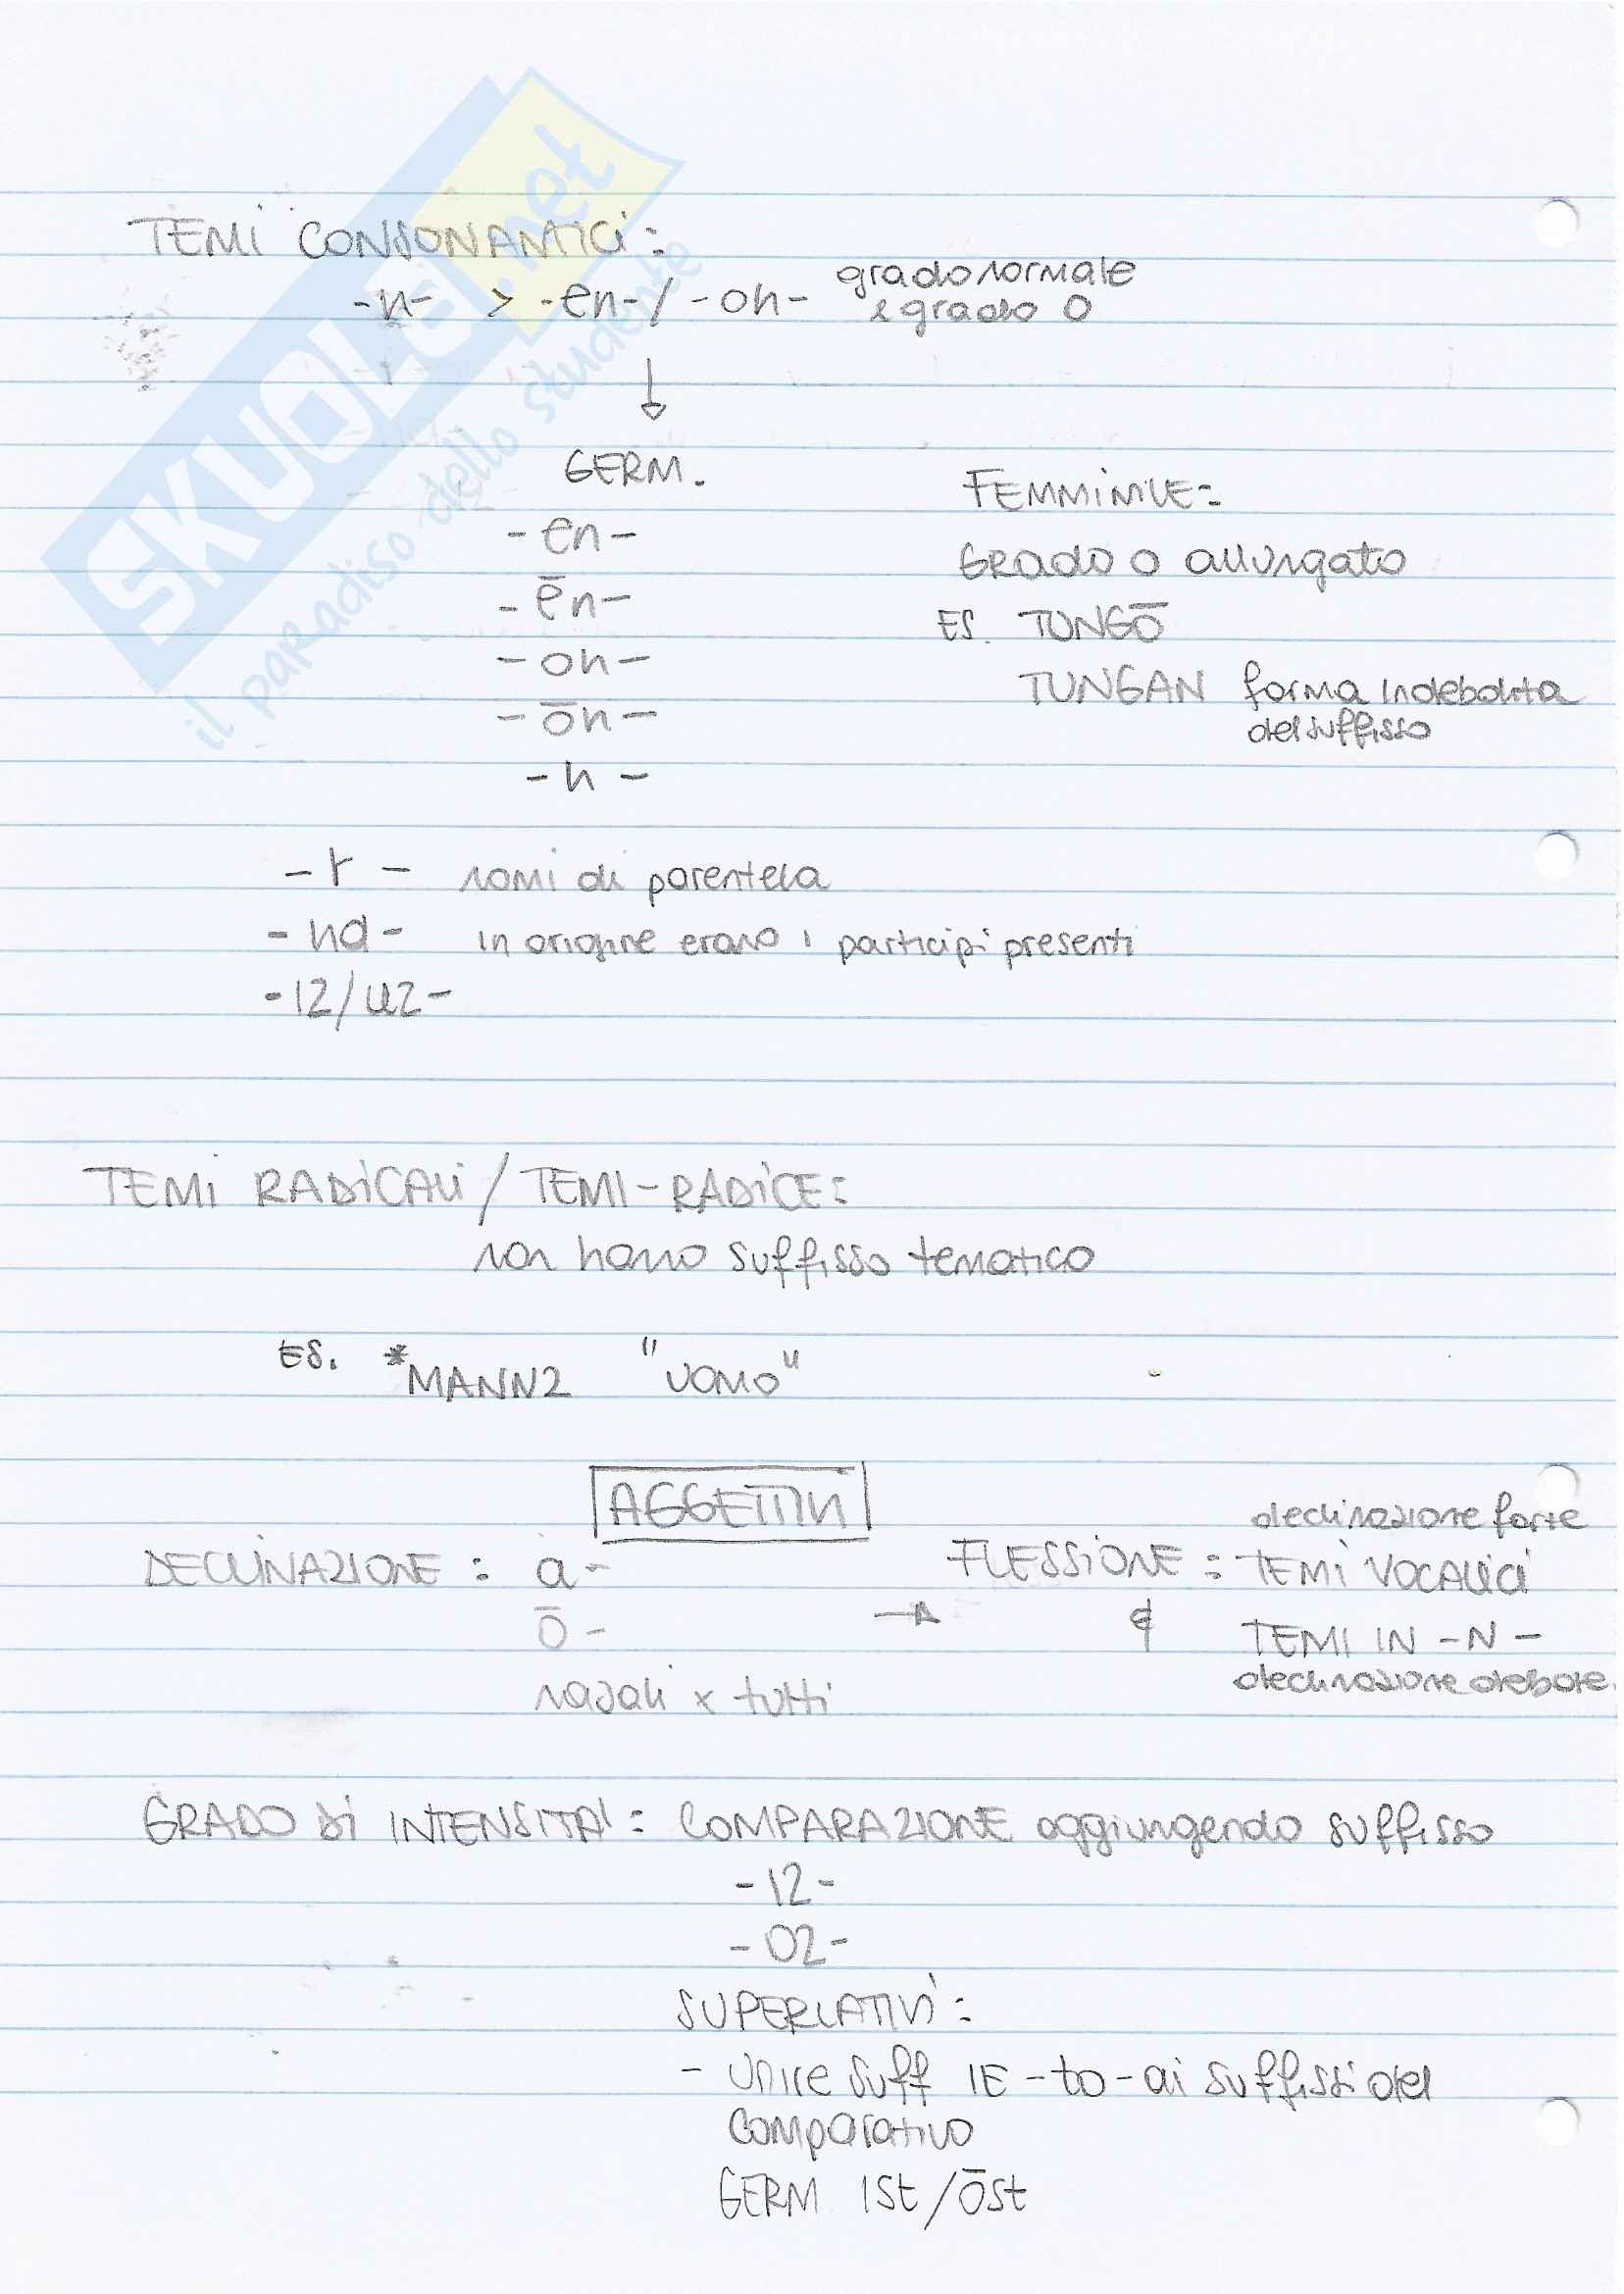 SKUOLA.net
il paradiso dello studente
TEMI CONSONANTICI:
-n- > -en- / -on- grado normale
e grado 0
↓
GERM.
-en-
-ēn-
-on-
-ōn-
-n-
FEMMINILE:
GRADO O allungato
ES. TUNGŌ
TUNGAN forma indebolita
del suffisso
-r- nomi di parentela
-nd- in origine erano i participi presenti
-IZ/UZ-
TEMI RADICALI / TEMI-RADICE:
non hanno suffisso tematico
ES. *MANNZ "UOMO"
AGGETTIVI
DECLINAZIONE: a-
ō-
nasali x tutti
→
declinazione forte
FLESSIONE: TEMI VOCALICI
e TEMI IN -N-
declinazione debole.
GRADO DI INTENSITA': COMPARAZIONE aggiungendo suffisso
-IZ-
-OZ-
SUPERLATIVI:
- unire suff IE -to- ai suffissi del
comparativo
GERM ISt/ŌSt